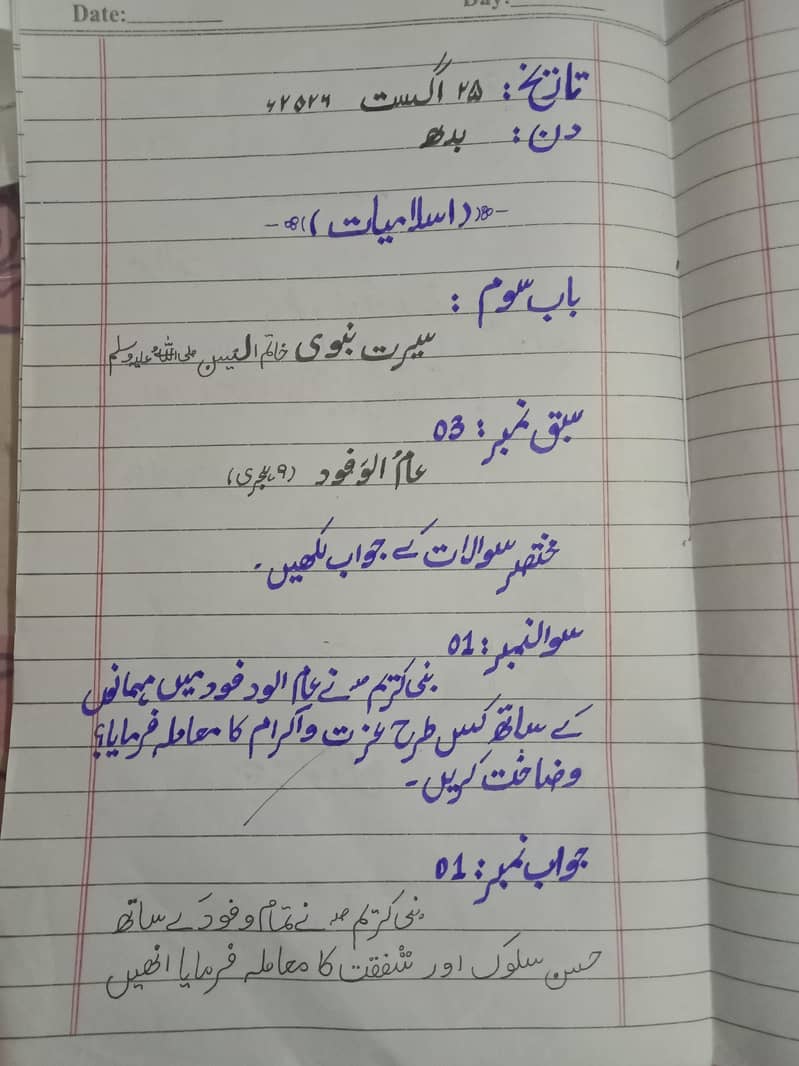 Date:
Day:
تاریخ: ۲۵ اگست ۲۰۲۶ء
دن: بدھ
(اسلامیات)
باب سوم :
سیرت نبوی خاتم النبیین صلی اللہ علیہ وسلم
سبق نمبر: 03
عامُ الوَفود (۹ہجری)
مختصر سوالات کے جواب لکھیں۔
سوالنمبر: 01
نبی کریم ﷺ نے عام الودفود میں مہمانوں
کے ساتھ کس طرح عزت واکرام کا معاملہ فرمایا؟
وضاخت کریں۔
جواب نمبر: 01
نبی کریم ﷺ نے تمام وفود کے ساتھ
حسن سلوک اور شفقت کا معاملہ فرمایا انھیں